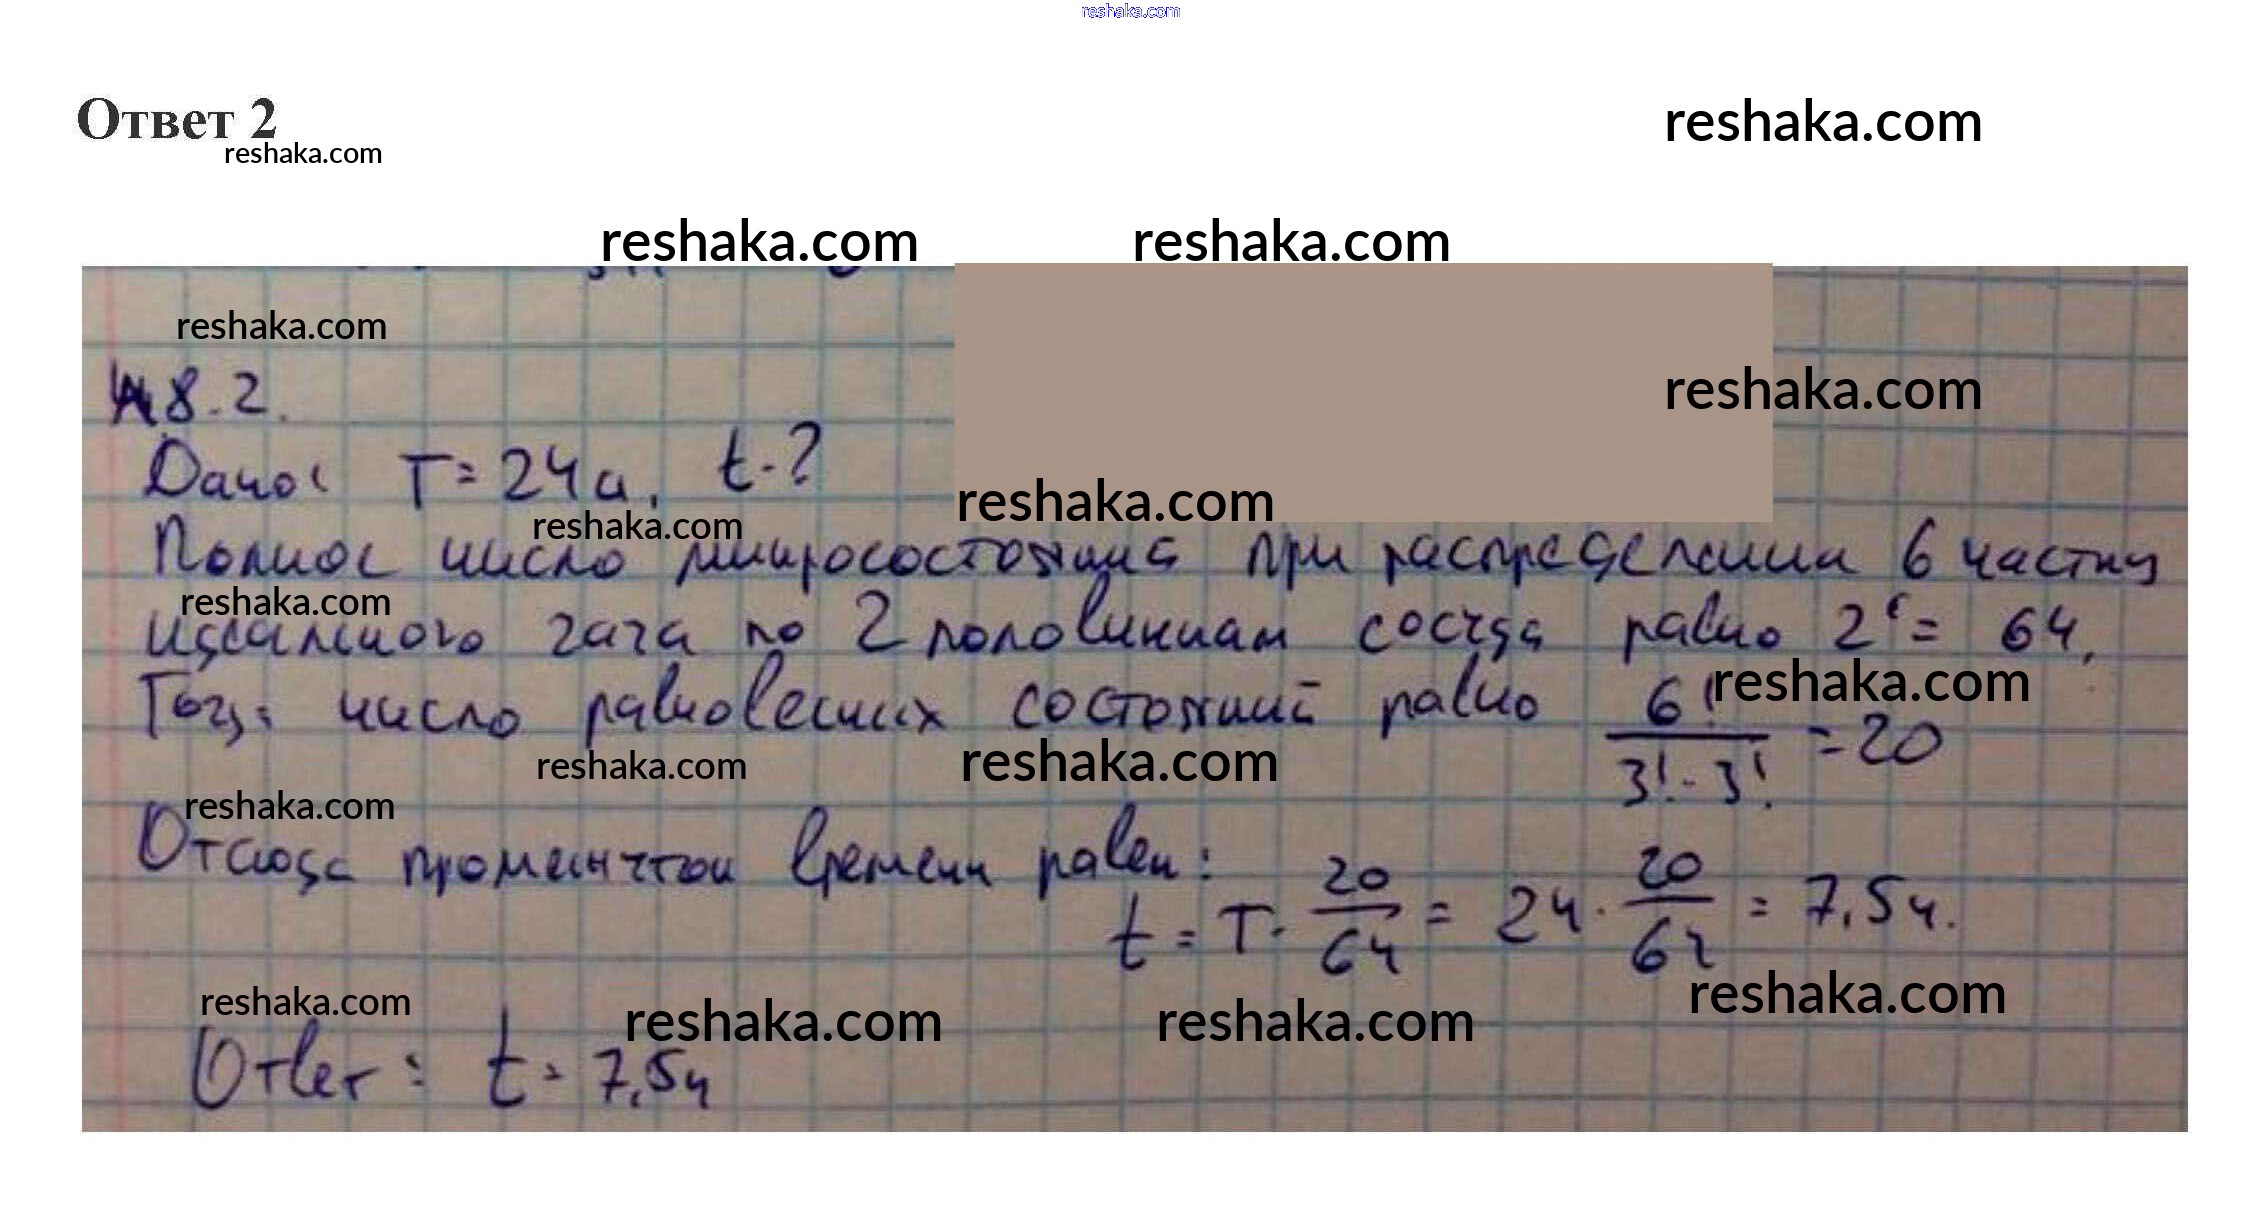 reshaka.com
Ответ 2
reshaka.com
reshaka.com
reshaka.com reshaka.com
reshaka.com
8.2.
reshaka.com
Дано: T = 24 ч. t - ?
reshaka.com
reshaka.com
Полное число микросостояний при распределении 6 частиц
reshaka.com
идеального газа по 2 половинам сосуда равно 2⁶ = 64.
reshaka.com
Тогда число равновесных состояний равно 6! / 3! · 3! = 20
reshaka.com reshaka.com
reshaka.com
Отсюда промежуток времени равен:
t = T · 20/64 = 24 · 20/64 = 7,5 ч.
reshaka.com reshaka.com reshaka.com reshaka.com
Ответ: t = 7,5 ч